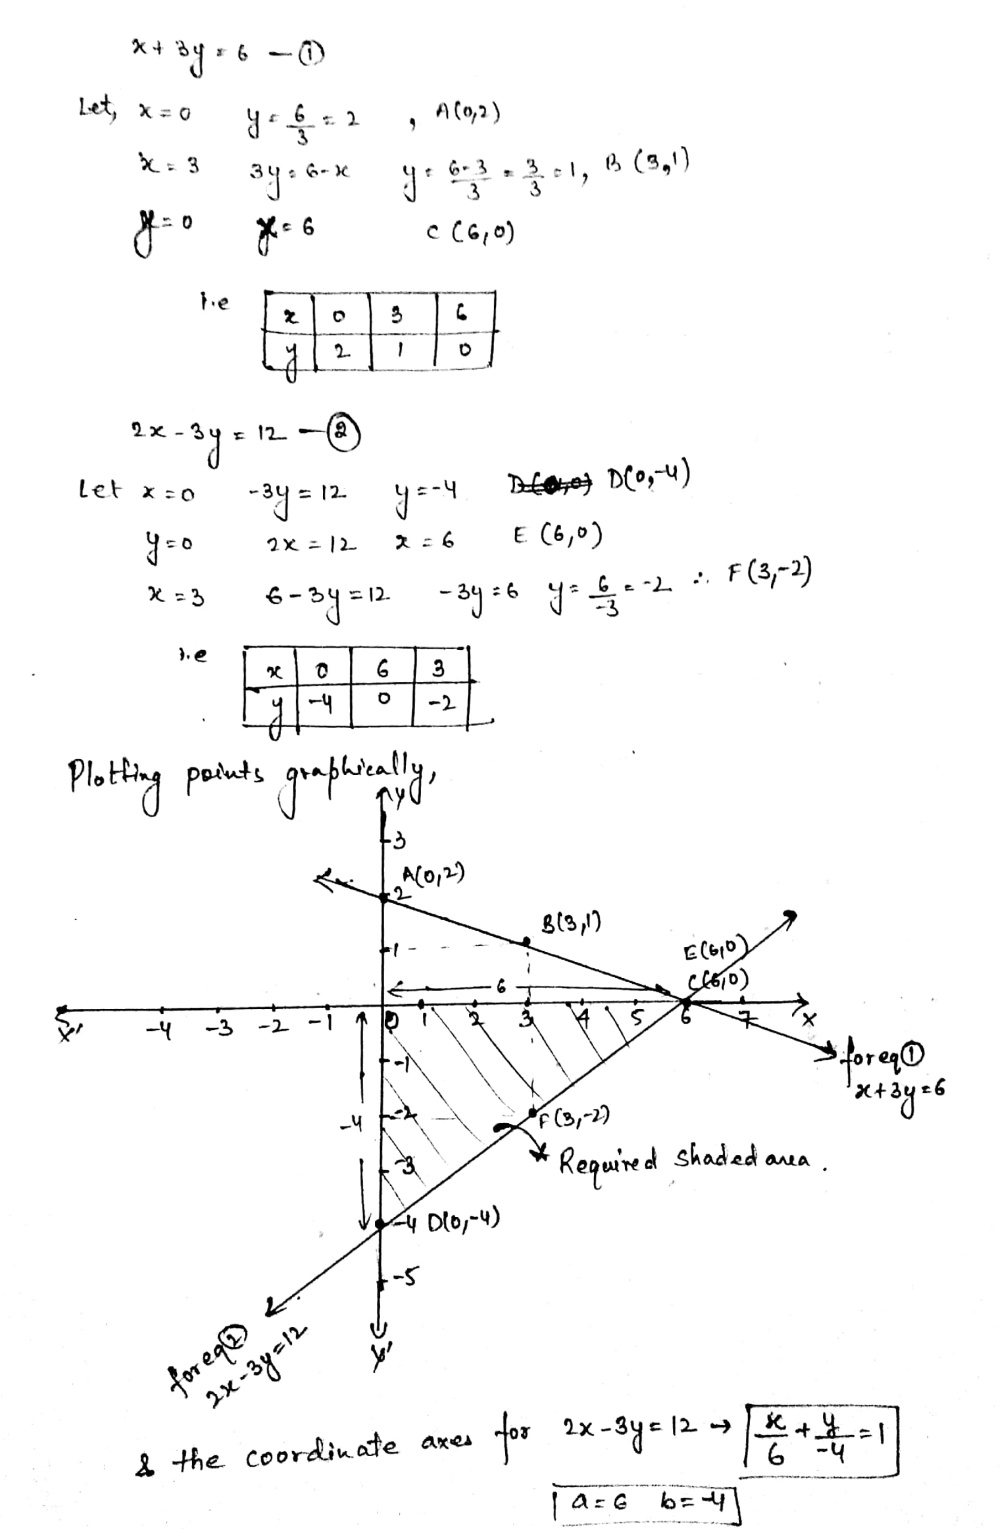 x + 3y = 6 — ①
Let, x = 0 y = 6/3 = 2 , A(0,2)
x = 3 3y = 6-x y = 6-3/3 = 3/3 = 1, B (3,1)
y = 0 x = 6 C (6,0)
i.e
x 0 3 6
y 2 1 0
2x - 3y = 12 — ②
Let x = 0 -3y = 12 y = -4 D(0,-4)
y = 0 2x = 12 x = 6 E (6,0)
x = 3 6 - 3y = 12 -3y = 6 y = 6/-3 = -2 ∴ F(3,-2)
i.e
x 0 6 3
y -4 0 -2
Plotting points graphically,
y
3
A(0,2)
2
B(3,1)
1
E(6,0)
C(6,0)
6
x' -4 -3 -2 -1 0 1 2 3 4 5 6 7 x
for eq ①
x+3y=6
-1
-2
-4
F(3,-2)
Required shaded area.
-3
-4 D(0,-4)
-5
y'
for eq ②
2x-3y=12
& the coordinate axes for 2x-3y=12 → x/6 + y/-4 = 1
a = 6 b = -4